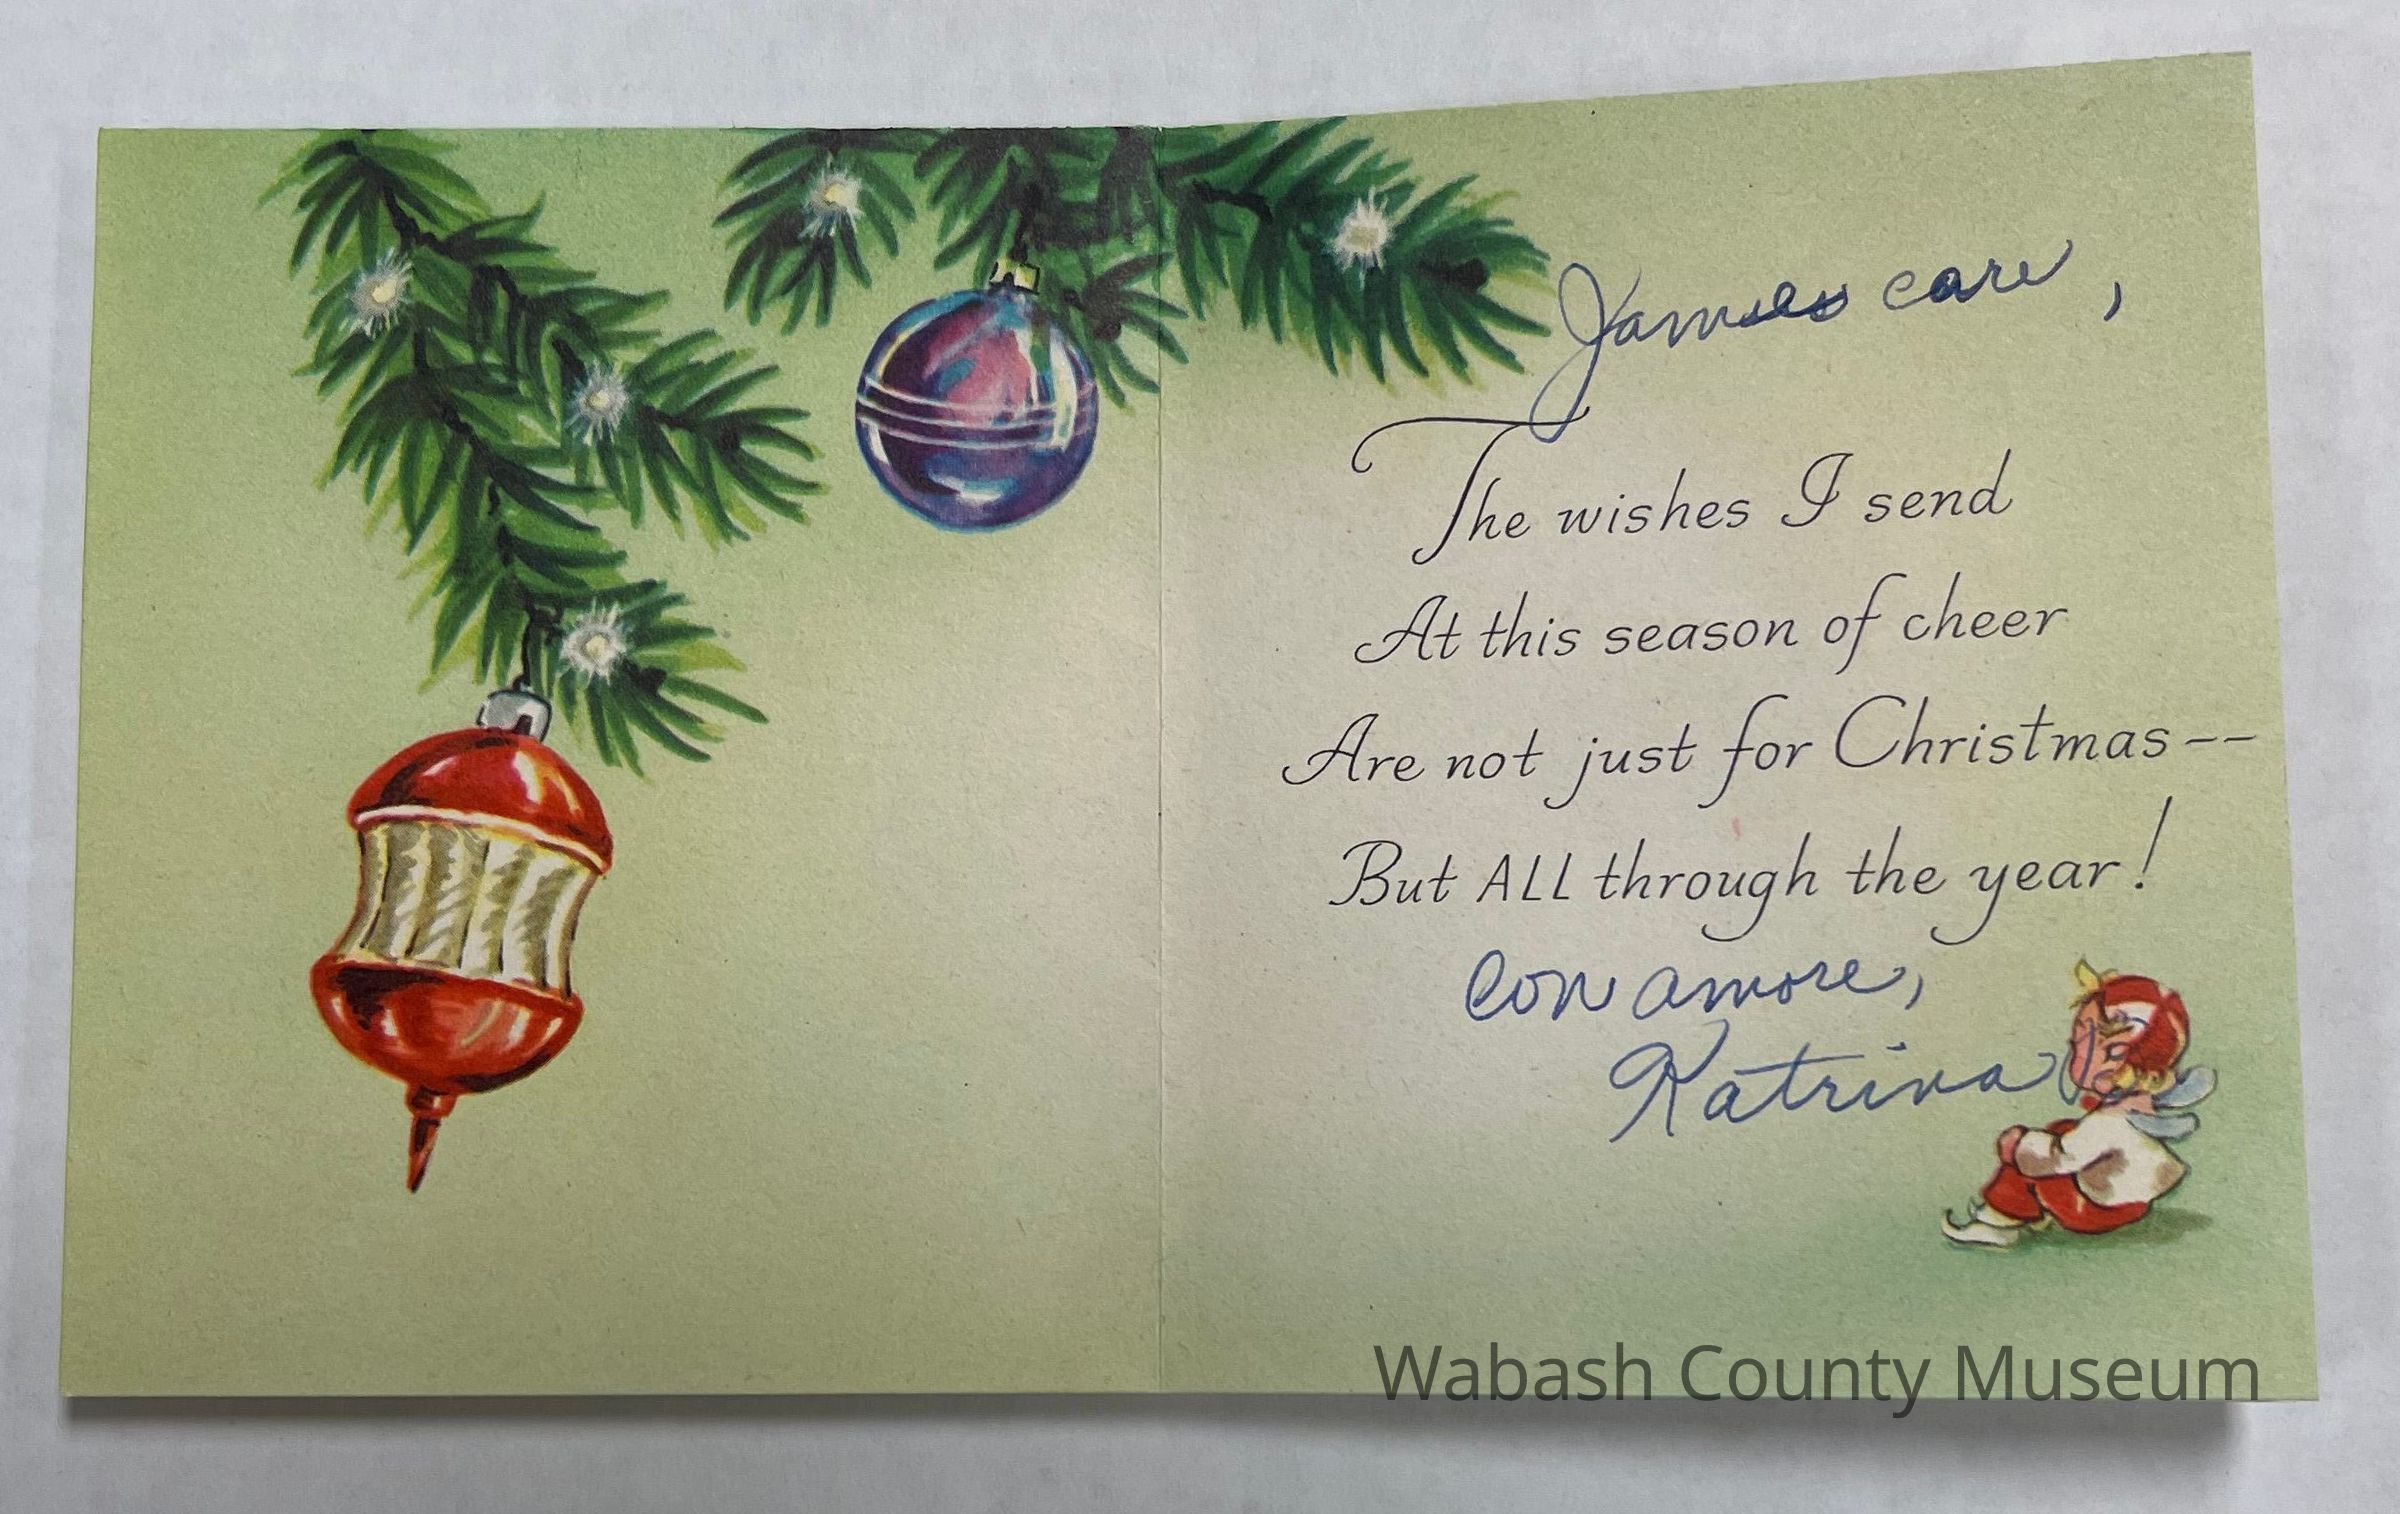 James care,
The wishes I send
At this season of cheer
Are not just for Christmas--
But ALL through the year!
Con amore,
Katrina
Wabash County Museum